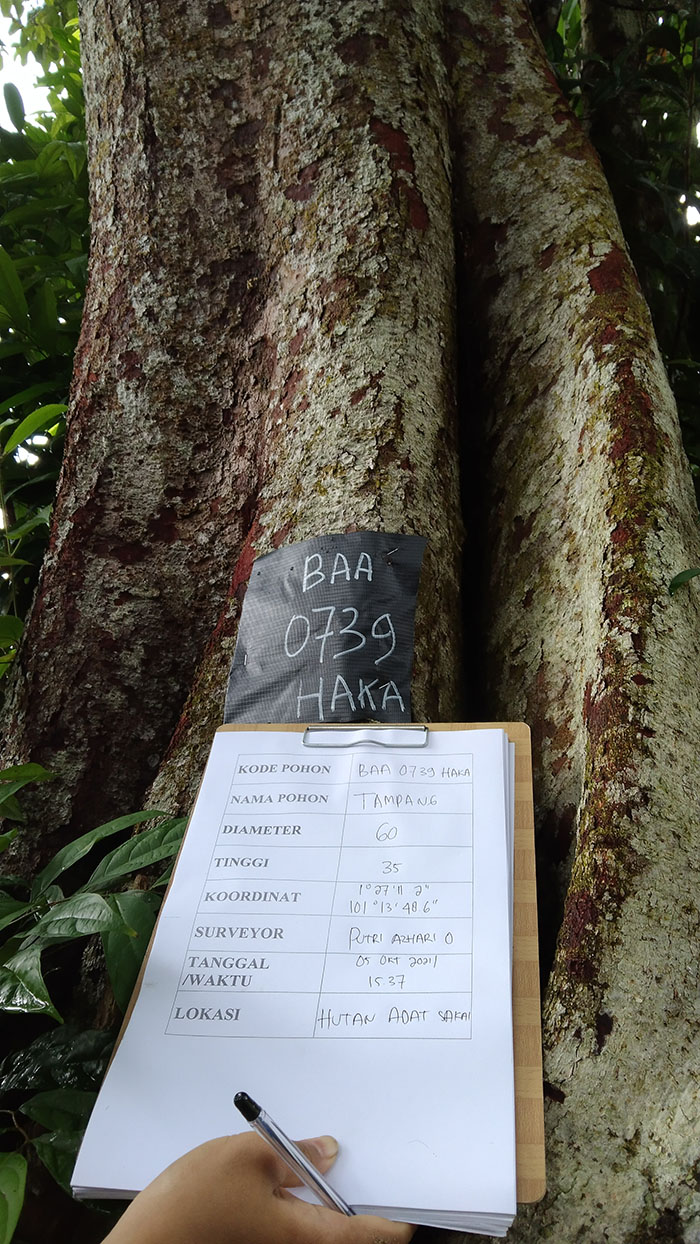 BAA
0739
HAKA
KODE POHON BAA 0739 HAKA
NAMA POHON TAMPANG
DIAMETER 60
TINGGI 35
KOORDINAT 1°27'11 2"
101°13'48 6"
SURVEYOR PUTRI AZHARI O
TANGGAL 05 OKT 2021/
/WAKTU 1537
LOKASI HUTAN ADAT SAKAI